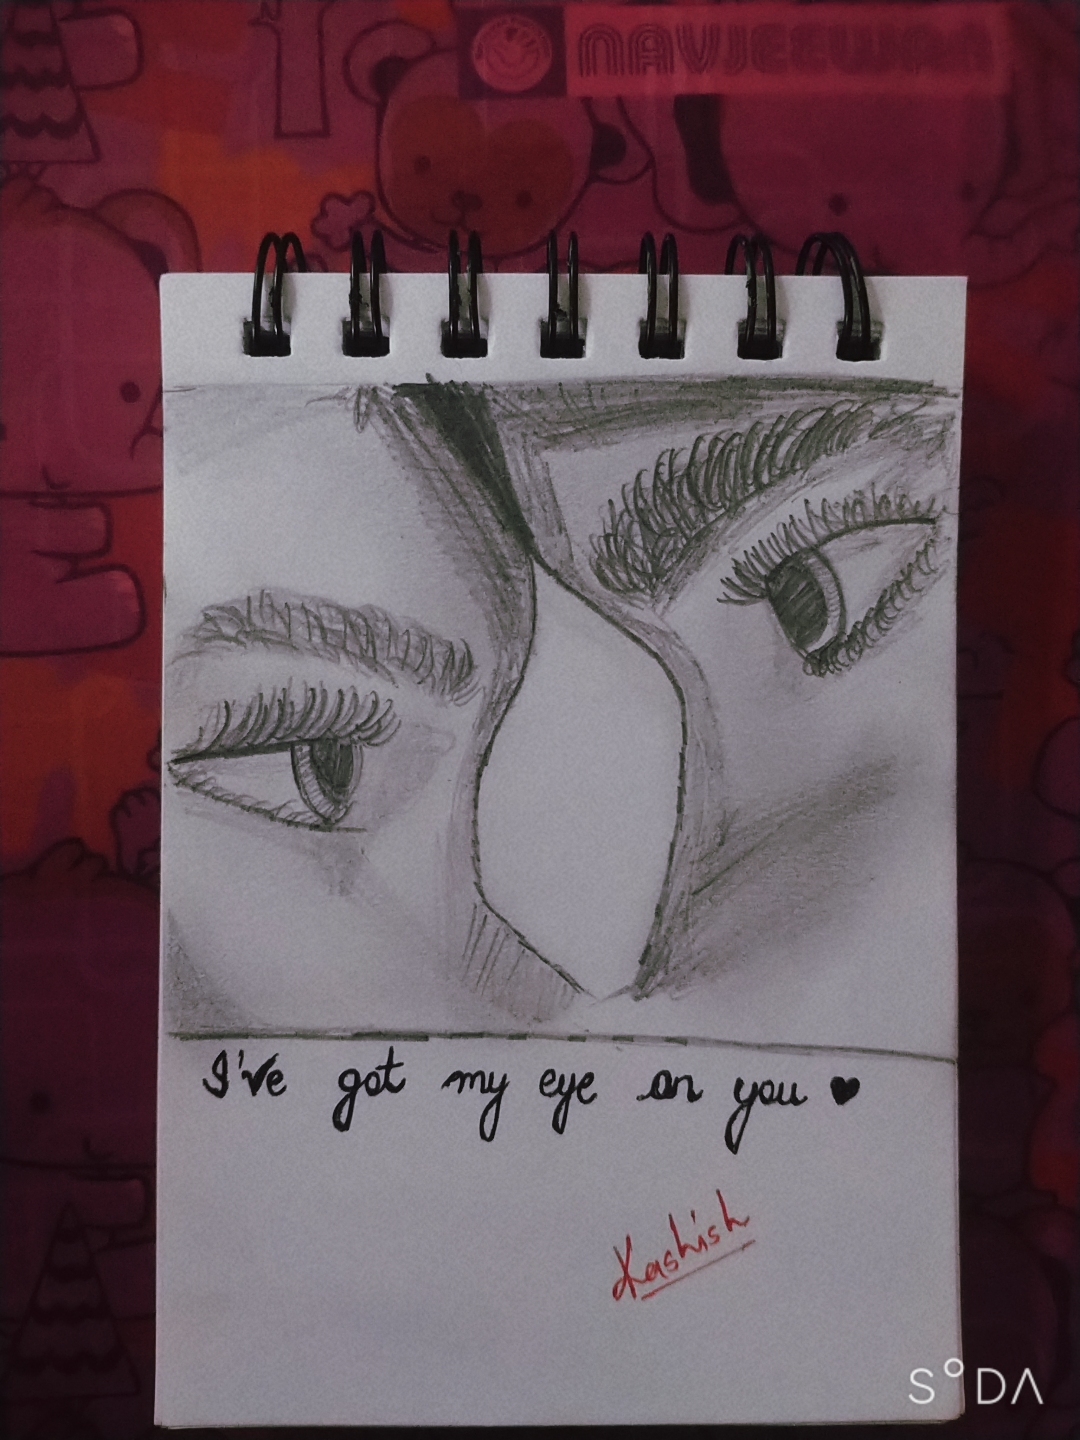 NAVJEEWAN
I've got my eye on you ♥
Kashish
SODA